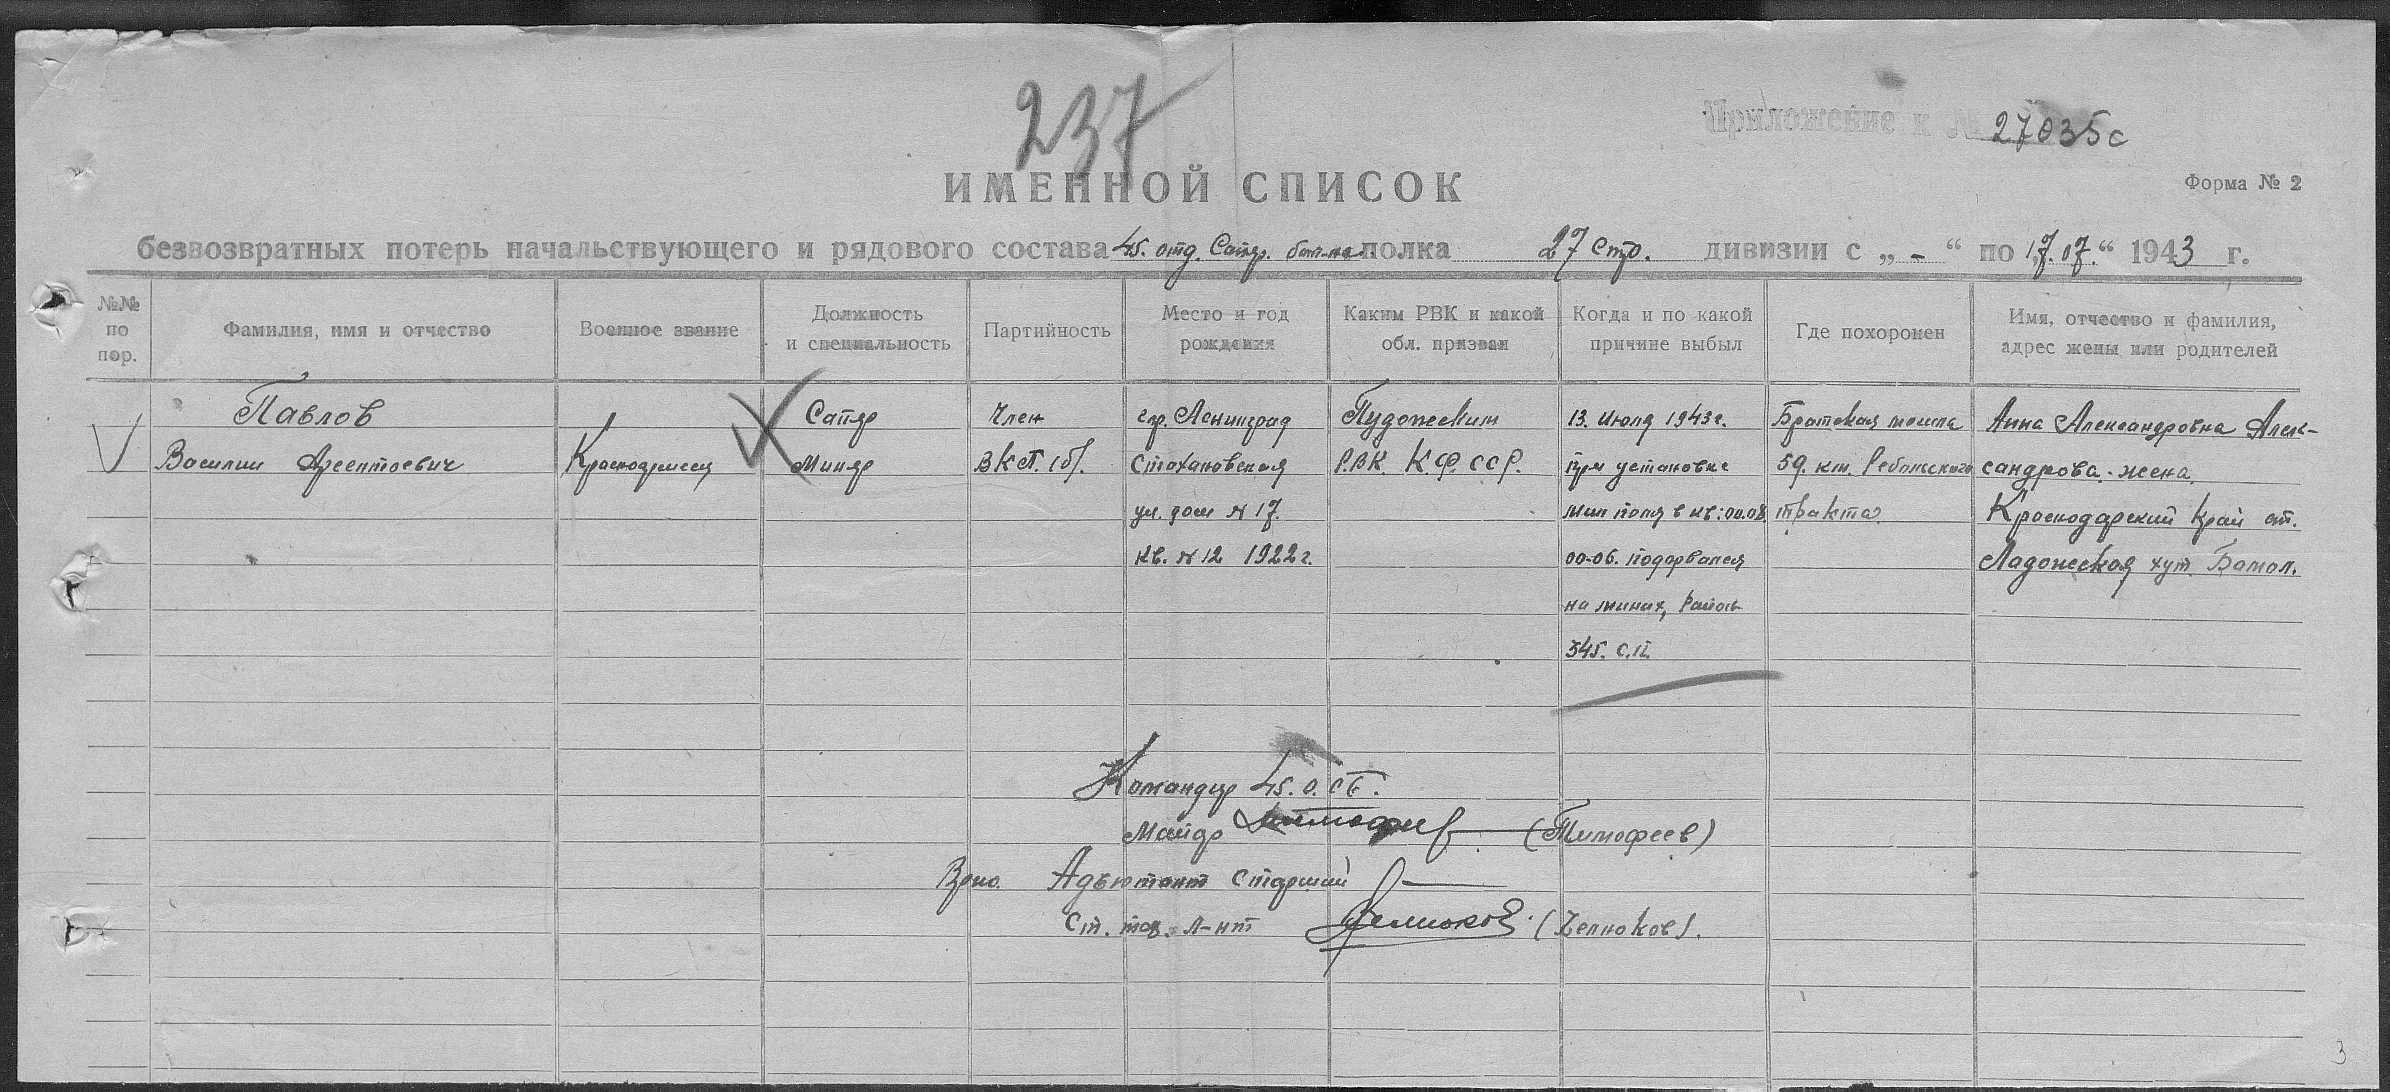 237
Приложение к № 27035с
ИМЕННОЙ СПИСОК
Форма № 2
безвозвратных потерь начальствующего и рядового состава 45. отд. Сапер. бат-на полка 27 Стр. дивизии с „ - “ по 17.07.“ 1943 г.
№№ по пор.
Фамилия, имя и отчество
Военное звание
Должность и специальность
Партийность
Место и год рождения
Каким РВК и какой обл. призван
Когда и по какой причине выбыл
Где похоронен
Имя, отчество и фамилия, адрес жены или родителей
Павлов
Василий Арсентьевич
Красноармеец
Сапер
Минер
Член
ВКП.(б).
гор. Ленинград
Стахановская
ул. дом № 17.
кв. № 12 1922 г.
Пудожским
РВК. КФССР.
13. Июля 1943 г.
при установке
мин поля в кв: 00.08.
00-06. подорвался
на минах, район
345. с.п.
Братская могила
59. км. Ребольского
тракта
Анна Александровна Алек-
сандрова - жена.
Краснодарский Край ст.
Ладожская хут.
Командир 45. о. сб.
Майор Тимофеев (Тимофеев)
Врио. Адъютант старший
Ст. тех. л-нт
3